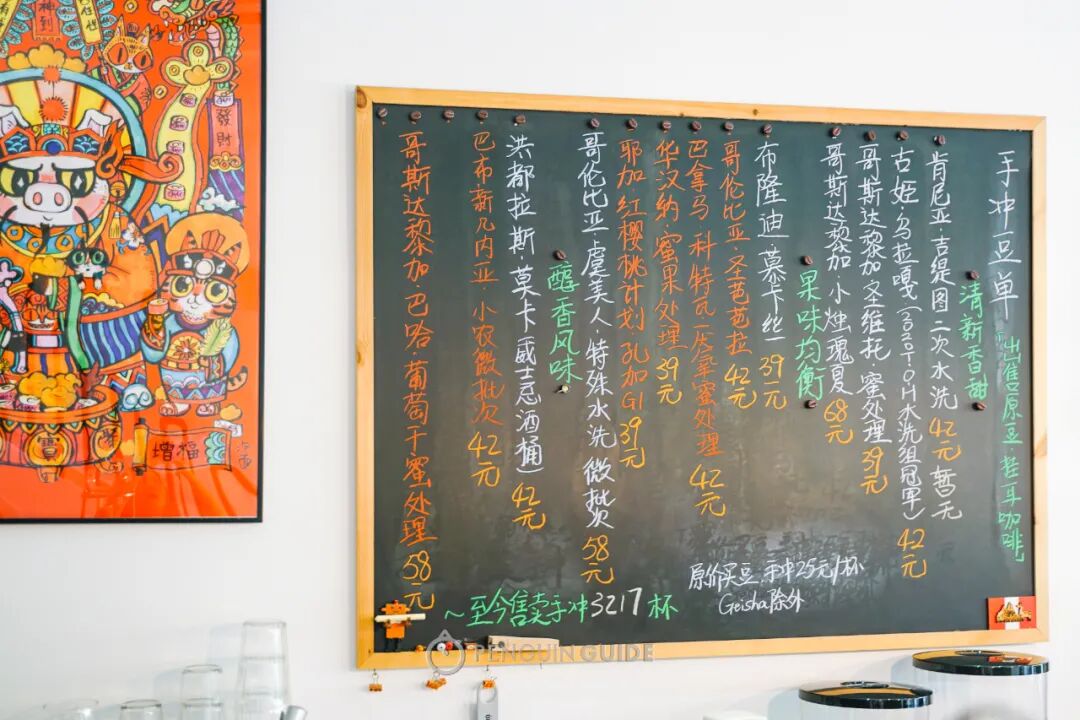 手冲豆单
出售原豆·挂耳咖啡
清新香甜
肯尼亚·吉缇图二次水洗 42元 暂无
古姬·乌拉嘎(2020TOH水洗组冠军) 42元
哥斯达黎加 圣维托·蜜处理 39元
哥斯达黎加 小烛瑰夏 68元
果味均衡
布隆迪·慕卡丝 39元
哥伦比亚·圣芭芭拉 42元
巴拿马·科特瓦 蜜处理 42元
华汉纳·蜜果处理 39元
耶加·红樱桃计划 孔加G1 39元
哥伦比亚·虞美人·特殊水洗 微批 58元
醇香风味
洪都拉斯·莫卡(威士忌酒桶) 42元
巴布新几内亚 小农微批次 42元
哥斯达黎加·巴哈·葡萄干蜜处理 58元
原价买豆 手冲25元/杯
Geisha除外
~至今售卖手冲3217杯
發財
增福
寶
PENGUIN GUIDE